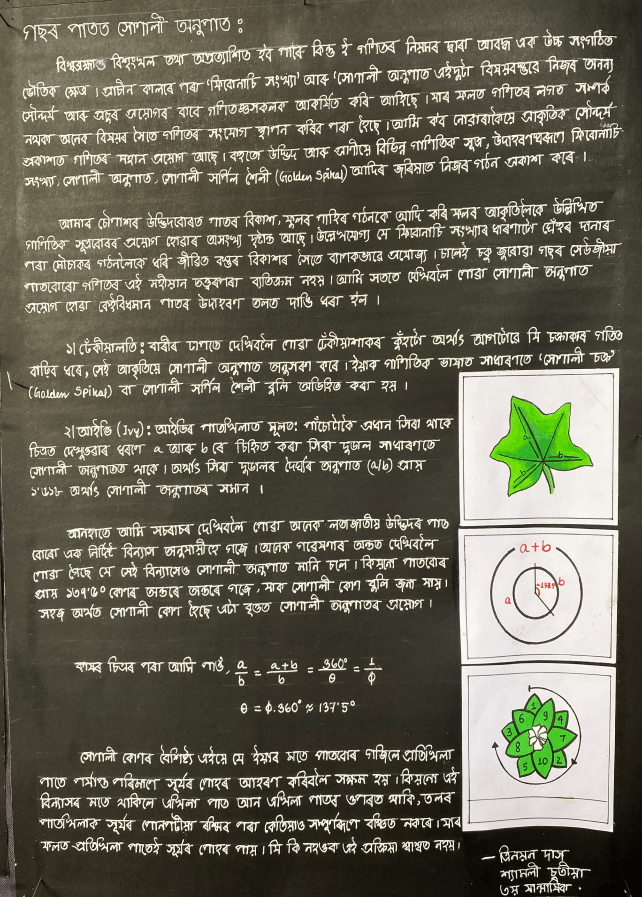 গছৰ পাতত সোণালী অনুপাত :
বিশ্বব্ৰহ্মাণ্ড বিশৃংখল তথা অপ্ৰত্যাশিত হব পাৰে কিন্তু ই গণিতৰ নিয়মৰ দ্বাৰা আবদ্ধ এক উচ্চ সংগঠিত
ভৌতিক ক্ষেত্ৰ । প্ৰাচীন কালৰে পৰা 'ফিবোনাচি সংখ্যা' আৰু 'সোণালী অনুপাত এইদুটা বিষয়বস্তুৱে নিজৰ অনন্য
সৌন্দৰ্য আৰু প্ৰচুৰ প্ৰয়োগৰ বাবে গণিতজ্ঞসকলক আকৰ্ষিত কৰি আহিছে । যাৰ ফলত গণিতৰ লগত সম্পৰ্ক
নথকা অনেক বিষয়ৰ সৈতে গণিতৰ সংযোগ স্থাপন কৰিব পৰা হৈছে । আমি কব নোৱাৰাকৈয়ে প্ৰাকৃতিক সৌন্দৰ্য
প্ৰকাশত গণিতৰ মহান প্ৰয়োগ আছে । বহুতো উদ্ভিদ আৰু প্ৰাণীয়ে বিভিন্ন গাণিতিক সূত্ৰ, উদাহৰণস্বৰূপে ফিবোনাচি
সংখ্যা, সোণালী অনুপাত, সোণালী সৰ্পিল শৈলী (Golden Spiral) আদিৰ জৰিয়তে নিজৰ গঠন প্ৰকাশ কৰে ।
আমাৰ চৌপাশৰ উদ্ভিদবোৰত পাতৰ বিকাশ, ফুলৰ পাহিৰ গঠনকে আদি কৰি ফলৰ আকৃতিলৈকে উল্লিখিত
গাণিতিক সূত্ৰবোৰৰ প্ৰয়োগ হোৱাৰ অসংখ্য দৃষ্টান্ত আছে । উল্লেখযোগ্য যে ফিবোনাচি সংখ্যাৰ ধাৰণাটো ধেঁহৰ দানাৰ
পৰা মৌচাকৰ গঠনলৈকে ধৰি জীৱিত বস্তুৰ বিকাশৰ সৈতে ব্যাপকভাৱে প্ৰযোজ্য । চালেই চকু জুৰোৱা গছৰ সেউজীয়া
পাতবোৰো গণিতৰ এই মহীয়ান তত্ত্বৰপৰা ব্যতিক্ৰম নহয় । আমি সততে দেখিবলৈ পোৱা সোণালী অনুপাত
প্ৰয়োগ হোৱা কেইবিধমান পাতৰ উদাহৰণ তলত দাঙি ধৰা হ'ল ।
১। ঢেঁকীয়ালতি : বাৰীৰ চাপতে দেখিবলৈ পোৱা ঢেঁকীয়াশাকৰ কুঁহিটো অৰ্থাৎ আগটোৱে যি চক্ৰাকাৰ গতিত
বাঢ়িব ধৰে, সেই আকৃতিয়ে সোণালী অনুপাত অনুসৰণ কৰে । ইয়াক গাণিতিক ভাষাত সাধাৰণতে 'সোণালী চক্ৰ'
(Golden Spiral) বা সোণালী সৰ্পিল শৈলী বুলি অভিহিত কৰা হয় ।
২। আইভি (Ivy) : আইভিৰ পাতখিলাত মূলতঃ পাঁচোটাকৈ প্ৰধান সিৰা থাকে
চিত্ৰত দেখুওৱাৰ ধৰণে a আৰু b ৰে চিহ্নিত কৰা সিৰা দুডাল সাধাৰণতে
সোণালী অনুপাতত থাকে । অৰ্থাৎ সিৰা দুডালৰ দৈৰ্ঘ্যৰ অনুপাত (a/b) প্ৰায়
১'৬১৮ অৰ্থাৎ সোণালী অনুপাতৰ সমান ।
a
b
b
আনহাতে আমি সচৰাচৰ দেখিবলৈ পোৱা অনেক লতাজাতীয় উদ্ভিদৰ পাত
বোৰো এক নিৰ্দিষ্ট বিন্যাস অনুযায়ীহে গজে । অনেক গৱেষণাৰ অন্তত দেখিবলৈ
পোৱা গৈছে যে সেই বিন্যাসেও সোণালী অনুপাত মানি চলে । কিয়নো পাতবোৰ
প্ৰায় ১৩৭'৫° কোণৰ অন্তৰে অন্তৰে গজে, যাক সোণালী কোণ বুলি জনা যায় ।
সহজ অৰ্থত সোণালী কোণ হৈছে এটা বৃত্তত সোণালী অনুপাতৰ প্ৰয়োগ ।
a+b
a
b
কাষৰ চিত্ৰৰ পৰা আমি পাওঁ, a/b = a+b/b = 360°/θ = 1/ϕ
θ = ϕ.360° ≈ 137'5°
1
6
9
4
3
7
8
2
5
10
সোণালী কোণৰ বৈশিষ্ট্য এইয়ে যে ইয়াৰ মতে পাতবোৰ গজিলে প্ৰতিখিলা
পাতে পৰ্যাপ্ত পৰিমাণে সূৰ্যৰ পোহৰ আহৰণ কৰিবলৈ সক্ষম হয় । কিয়নো এই
বিন্যাসৰ মতে থাকিলে এখিলা পাত আন এখিলা পাতৰ ওপৰত থাকি, তলৰ
পাতখিলাক সূৰ্যৰ পোনপটীয়া ৰশ্মিৰ পৰা কেতিয়াও সম্পূৰ্ণৰূপে বঞ্চিত নকৰে । যাৰ
ফলত প্ৰতিখিলা পাতেই সূৰ্যৰ পোহৰ পায় । যি কি নহওক এই প্ৰক্ৰিয়া শাশ্বত নহয় ।
— ত্ৰিনয়ন দাস
শ্যামলী চুতীয়া
৩য় ষান্মাসিক .